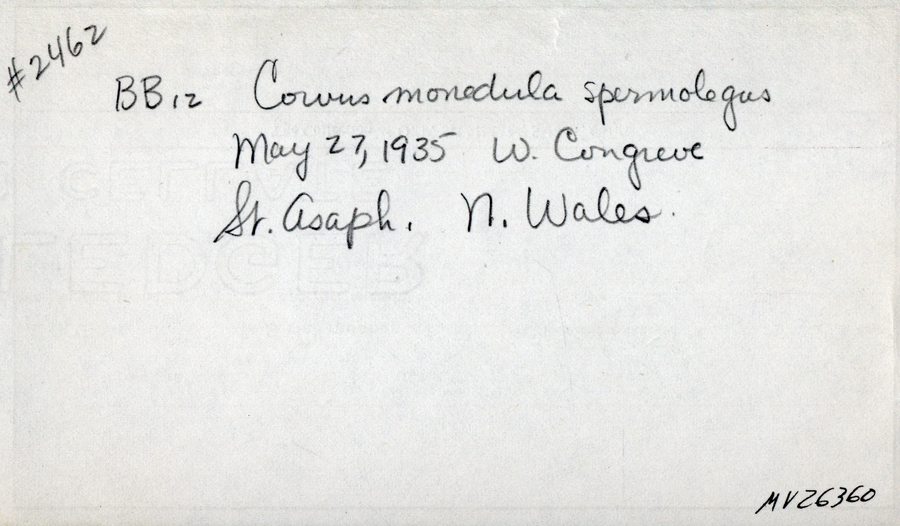 #2462
BB12 Corvus monedula spermolegus
May 27, 1935 W. Congreve
St. Asaph. N. Wales.
MV26360